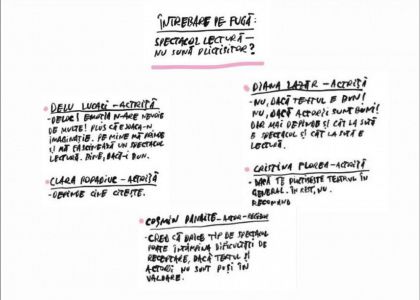 ÎNTREBARE PE FUGĂ:
SPECTACOL LECTURĂ—
NU SUNĂ PLICTISITOR?
DELU LUCACI - ACTRIȚĂ
- DELOC! EMOȚIA N-ARE NEVOIE
DE MULTE! PLUS CĂ
IMAGINAȚIE. PE MINE MĂ PRINDE
ȘI MĂ FASCINEAZĂ UN SPECTACOL
LECTURĂ. BINE, DACĂ-I BUN.
CLARA POPADIUC - ACTRIȚĂ
- DEPINDE CINE CITEȘTE.
DIANA LAZĂR - ACTRIȚĂ
- NU, DACĂ TEXTUL E BUN!
NU, DACĂ ACTORII SUNT BUNI!
DAR MAI DEPINDE ȘI CÂT LA SUTĂ
E SPECTACOL ȘI CÂT LA SUTĂ E
LECTURĂ.
CRISTINA FLOREA - ACTRIȚĂ
- DACĂ TE PLICTISEȘTE TEATRUL ÎN
GENERAL. ÎN REST, NU.
RECOMAND
COSMIN PANAITE - ACTOR - REGIZOR
- CRED CĂ ORICE TIP DE SPECTACOL
POATE ÎNTÂMPINA DIFICULTĂȚI DE
RECEPTARE, DACĂ TEXTUL ȘI
ACTORII NU SUNT PUȘI ÎN
VALOARE.